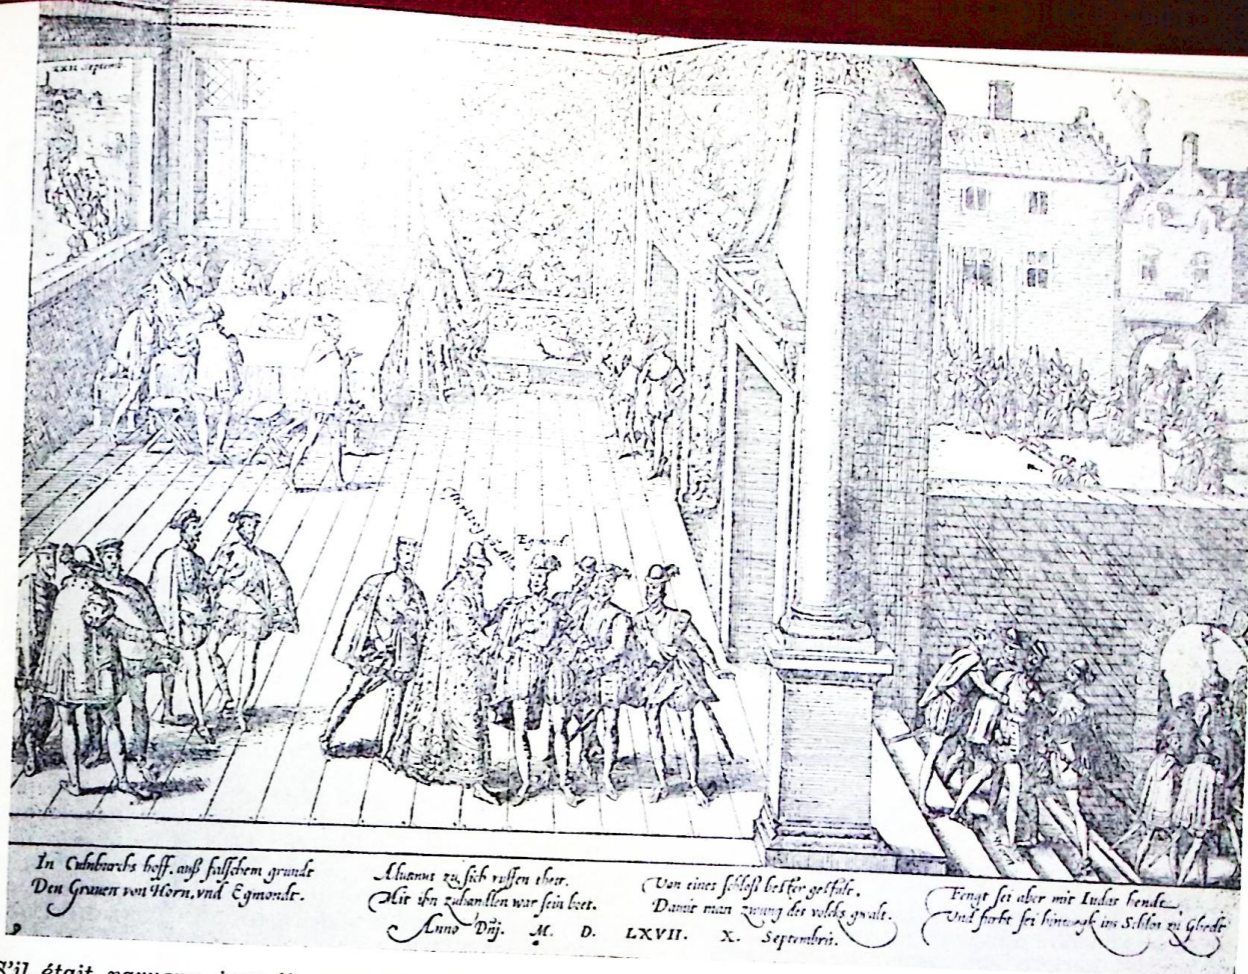 XXII Septemb
Egmond
In Culnburchs hoff. auß falschem grundt
Den Grauen von Horn, vnd Egmondt.
Aluanus zu sich ruffen thett.
Mit ihn zuhandlen war sein bott.
Von eines schloß besser gestalt.
Damit man zwung des volcks gwalt.
Fengt sei aber mit Iudas hendt
Vnd furht sei hinwegk ins Schlos zu Ghedt
Anno Dnj. M. D. LXVII. X. Septembris.
9
S'il était